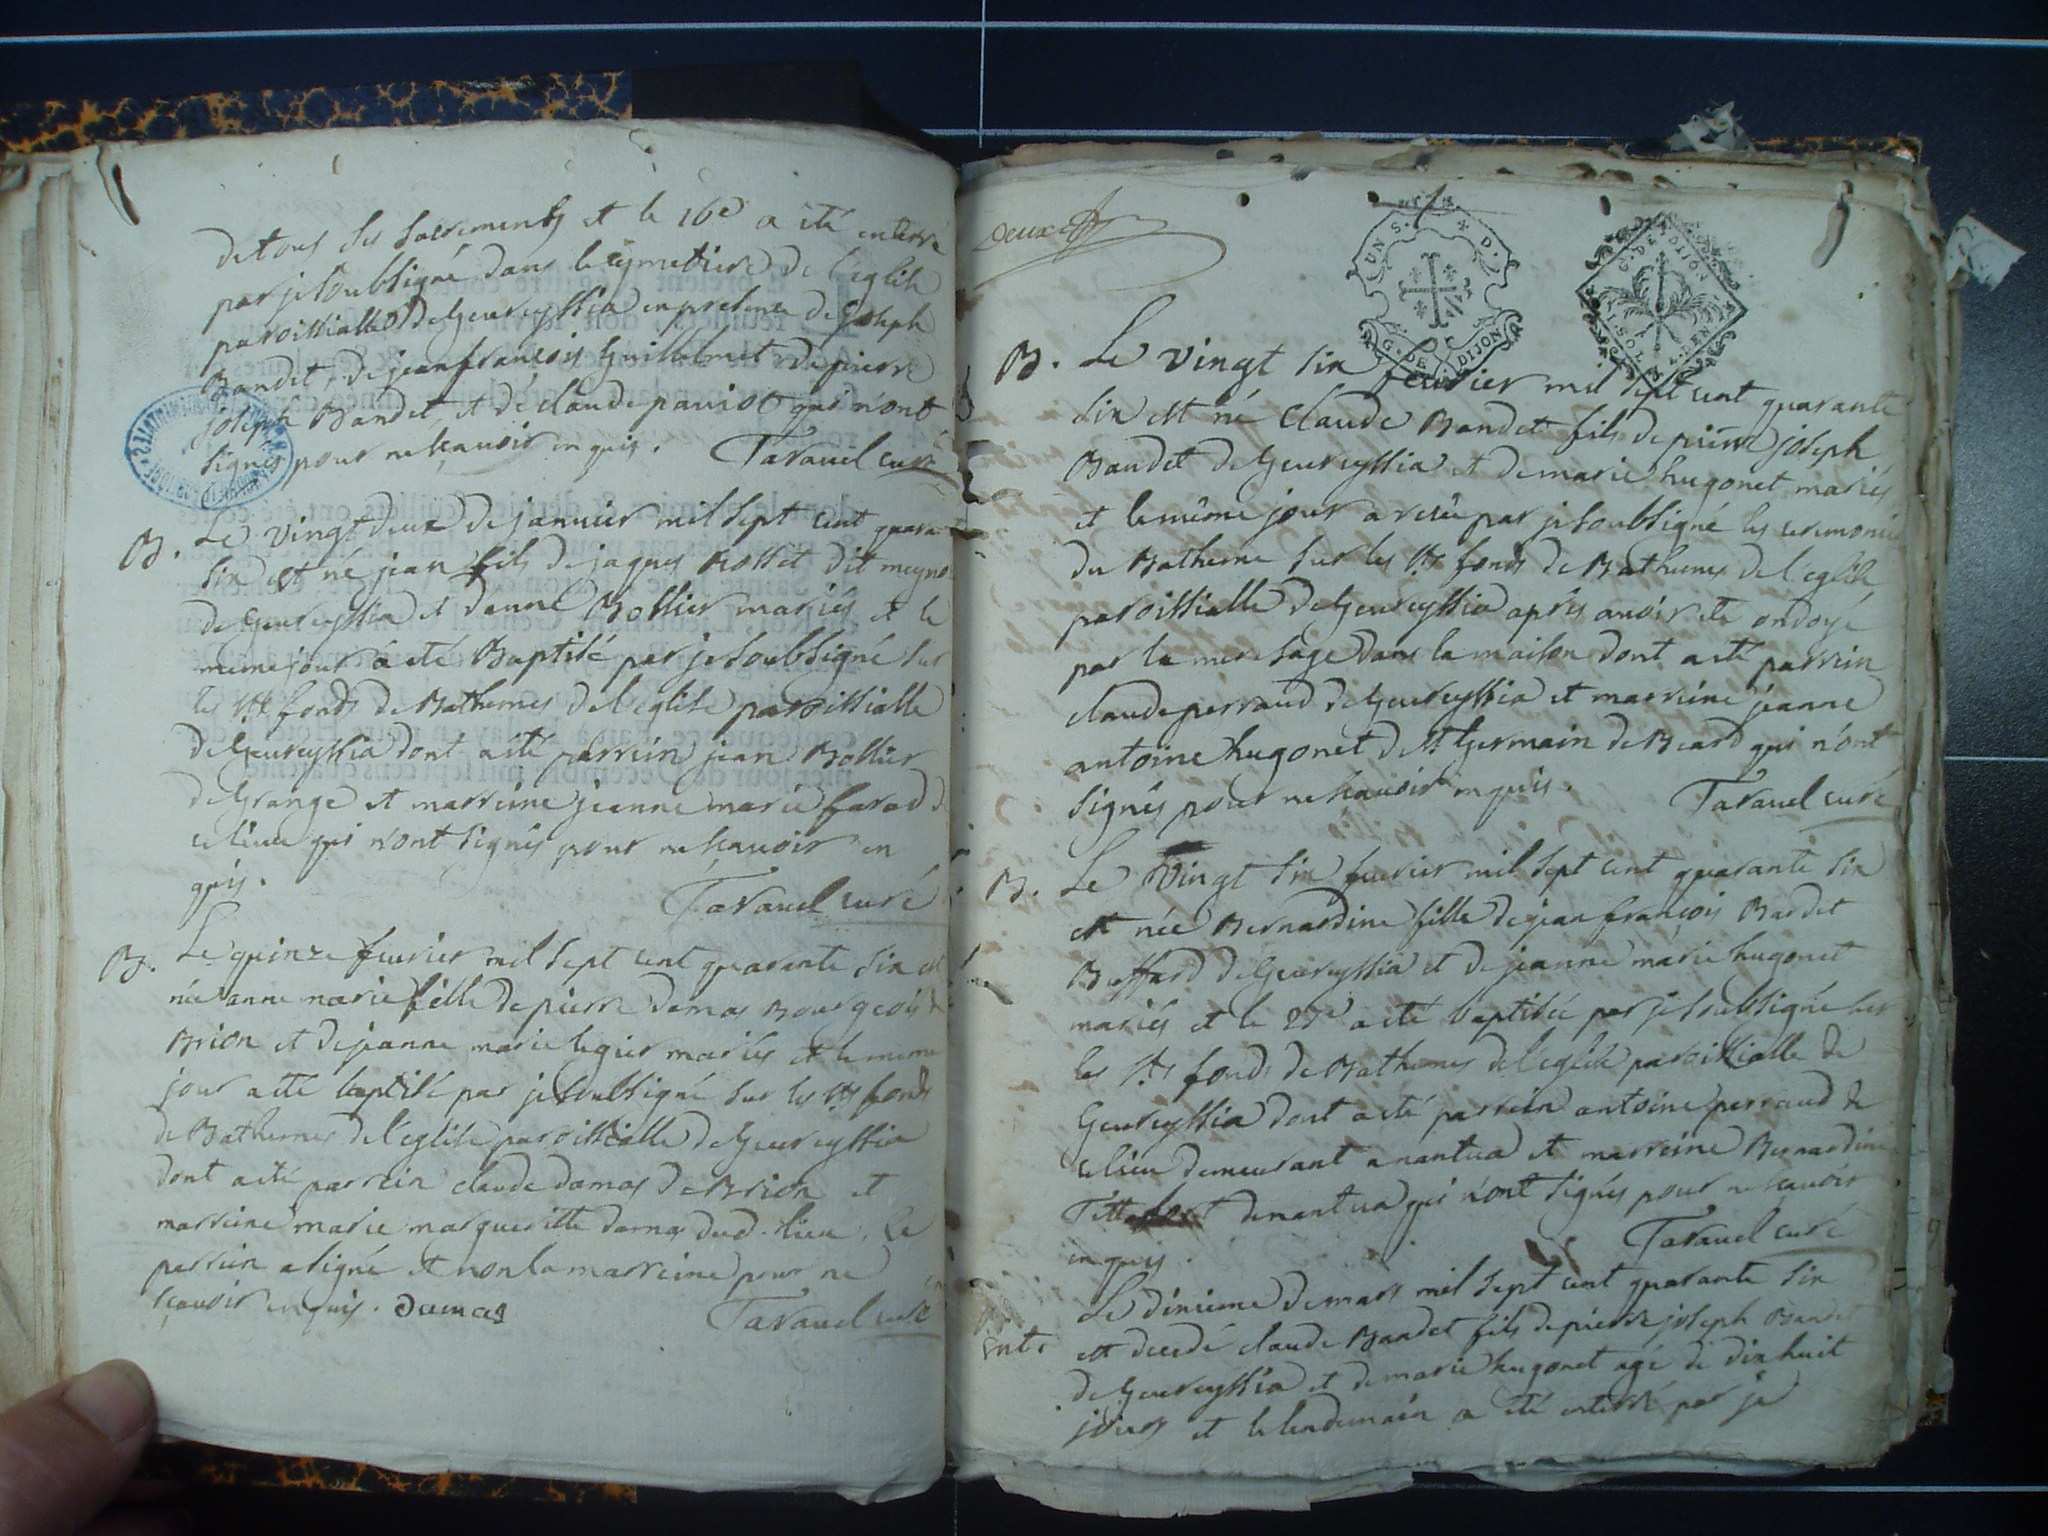 de tous ses sacrements et le 16e a été enterré
par je soubsigné dans le cymetiere de l'eglise
paroissialle de Geureyssia en presence de Joseph
Bandet, de jean françois Guillelmet de pierre
joseph Bandet et de claude paviot qui n'ont
signés pour ne sçavoir enquis. Taravel curé
B. Le vingt deux de janvier mil sept cent quarante
six est né jean fils de jaques Rosset dit meyno
de Geureyssia et d'anne Bollier mariés et le
meme jour a eté Baptisé par je soubsigné sur
les sts fonds de Bathemes de l'eglise paroissialle
de Geureyssia dont a eté parrein jean Bollier
de Grange et marreine jeanne marie farod d
ce lieu qui n'ont signés pour ne scavoir en
quis.
Taravel curé
B. Le quinze fevrier mil sept cent quarante six est
née anne marie fille de pierre damas Bourgeois de
Brion et de jeanne marie legier mariés et le meme
jour a eté baptisé par je soubsigné sur les sts fonds
de Bathemes de l'eglise paroissialle de Geureyssia
dont a eté parrein claude damas de Brion et
marreine marie margueritte damas dud. lieu. Le
parrein a signé et non la marreine pour ne
sçavoir enquis. Damas Taravel curé
Deux
UN S. D.
G. DE DIJON
G. DE DIJON
1. SOL 4. DEN
B. Le vingt six fevrier mil sept cent quarante
six est né Claude Bandet fils de pierre joseph
Bandet de Geureyssia et de marie hugonet mariés
et le même jour a reçu par je soubsigné les ceremonies
du Batheme sur les sts fonds de Bathemes de l'eglise
paroissialle de Geureyssia après avoir eté ondoyé
par la mere sage dans la maison dont a eté parrein
claude perraud de Geureyssia et marreine jeanne
antoine hugonet de st Germain de Beard qui n'ont
signés pour ne sçavoir enquis. Taravel curé
B. Le vingt six fevrier mil sept cent quarante six
est née Bernardine fille de jean françois Bandet
Buffard de Geureyssia et de jeanne marie hugonet
mariés et le 27e a eté baptisée par je soubsigné sur
les sts fonds de Bathemes de l'eglise paroissialle de
Geureyssia dont a eté parrein antoine perraud de
ce lieu demeurant a nantua et marreine Bernardine
de nantua qui n'ont signés pour ne scavoir
enquis.
Taravel curé
Ent. Le dixieme de mars mil sept cent quarante six
est decedé claude Bandet fils de pierre joseph Bandet
de Geureyssia et de marie hugonet agé de dix huit
jours et le lendemain a eté enterré par je